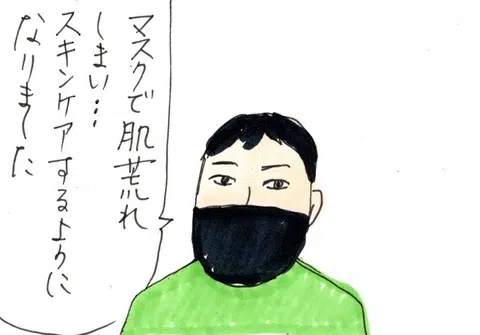 マスクで肌荒れ
しまい‥
スキンケアするように
なりました